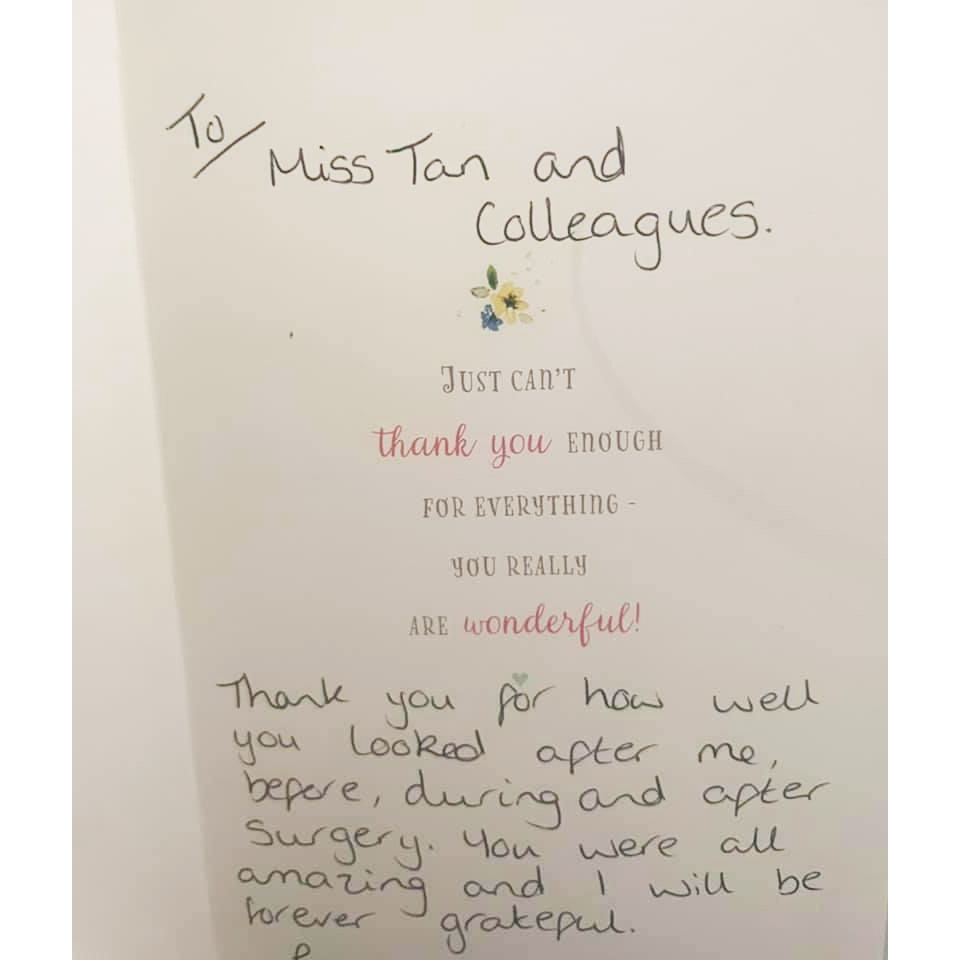 To/
Miss Tan and
Colleagues.
JUST CAN'T
thank you ENOUGH
FOR EVERYTHING -
YOU REALLY
ARE wonderful!
Thank you for how well
you looked after me,
before, during and after
surgery. You were all
amazing and I will be
forever grateful.